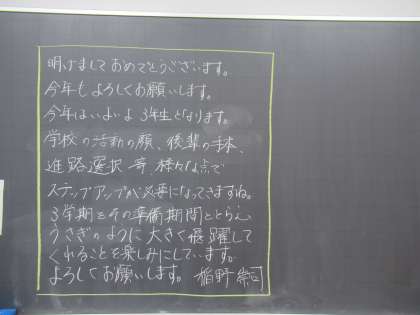 明けましておめでとうございます。
今年もよろしくお願いします。
今年はいよいよ3年生となります。
学校の活動の顔、後輩の手本、
進路選択等、様々な点で
ステップアップが必要になってきますね。
3学期をその準備期間ととらえ
うさぎのように大きく飛躍して
くれることを楽しみにしています。
よろしくお願いします。 稲野